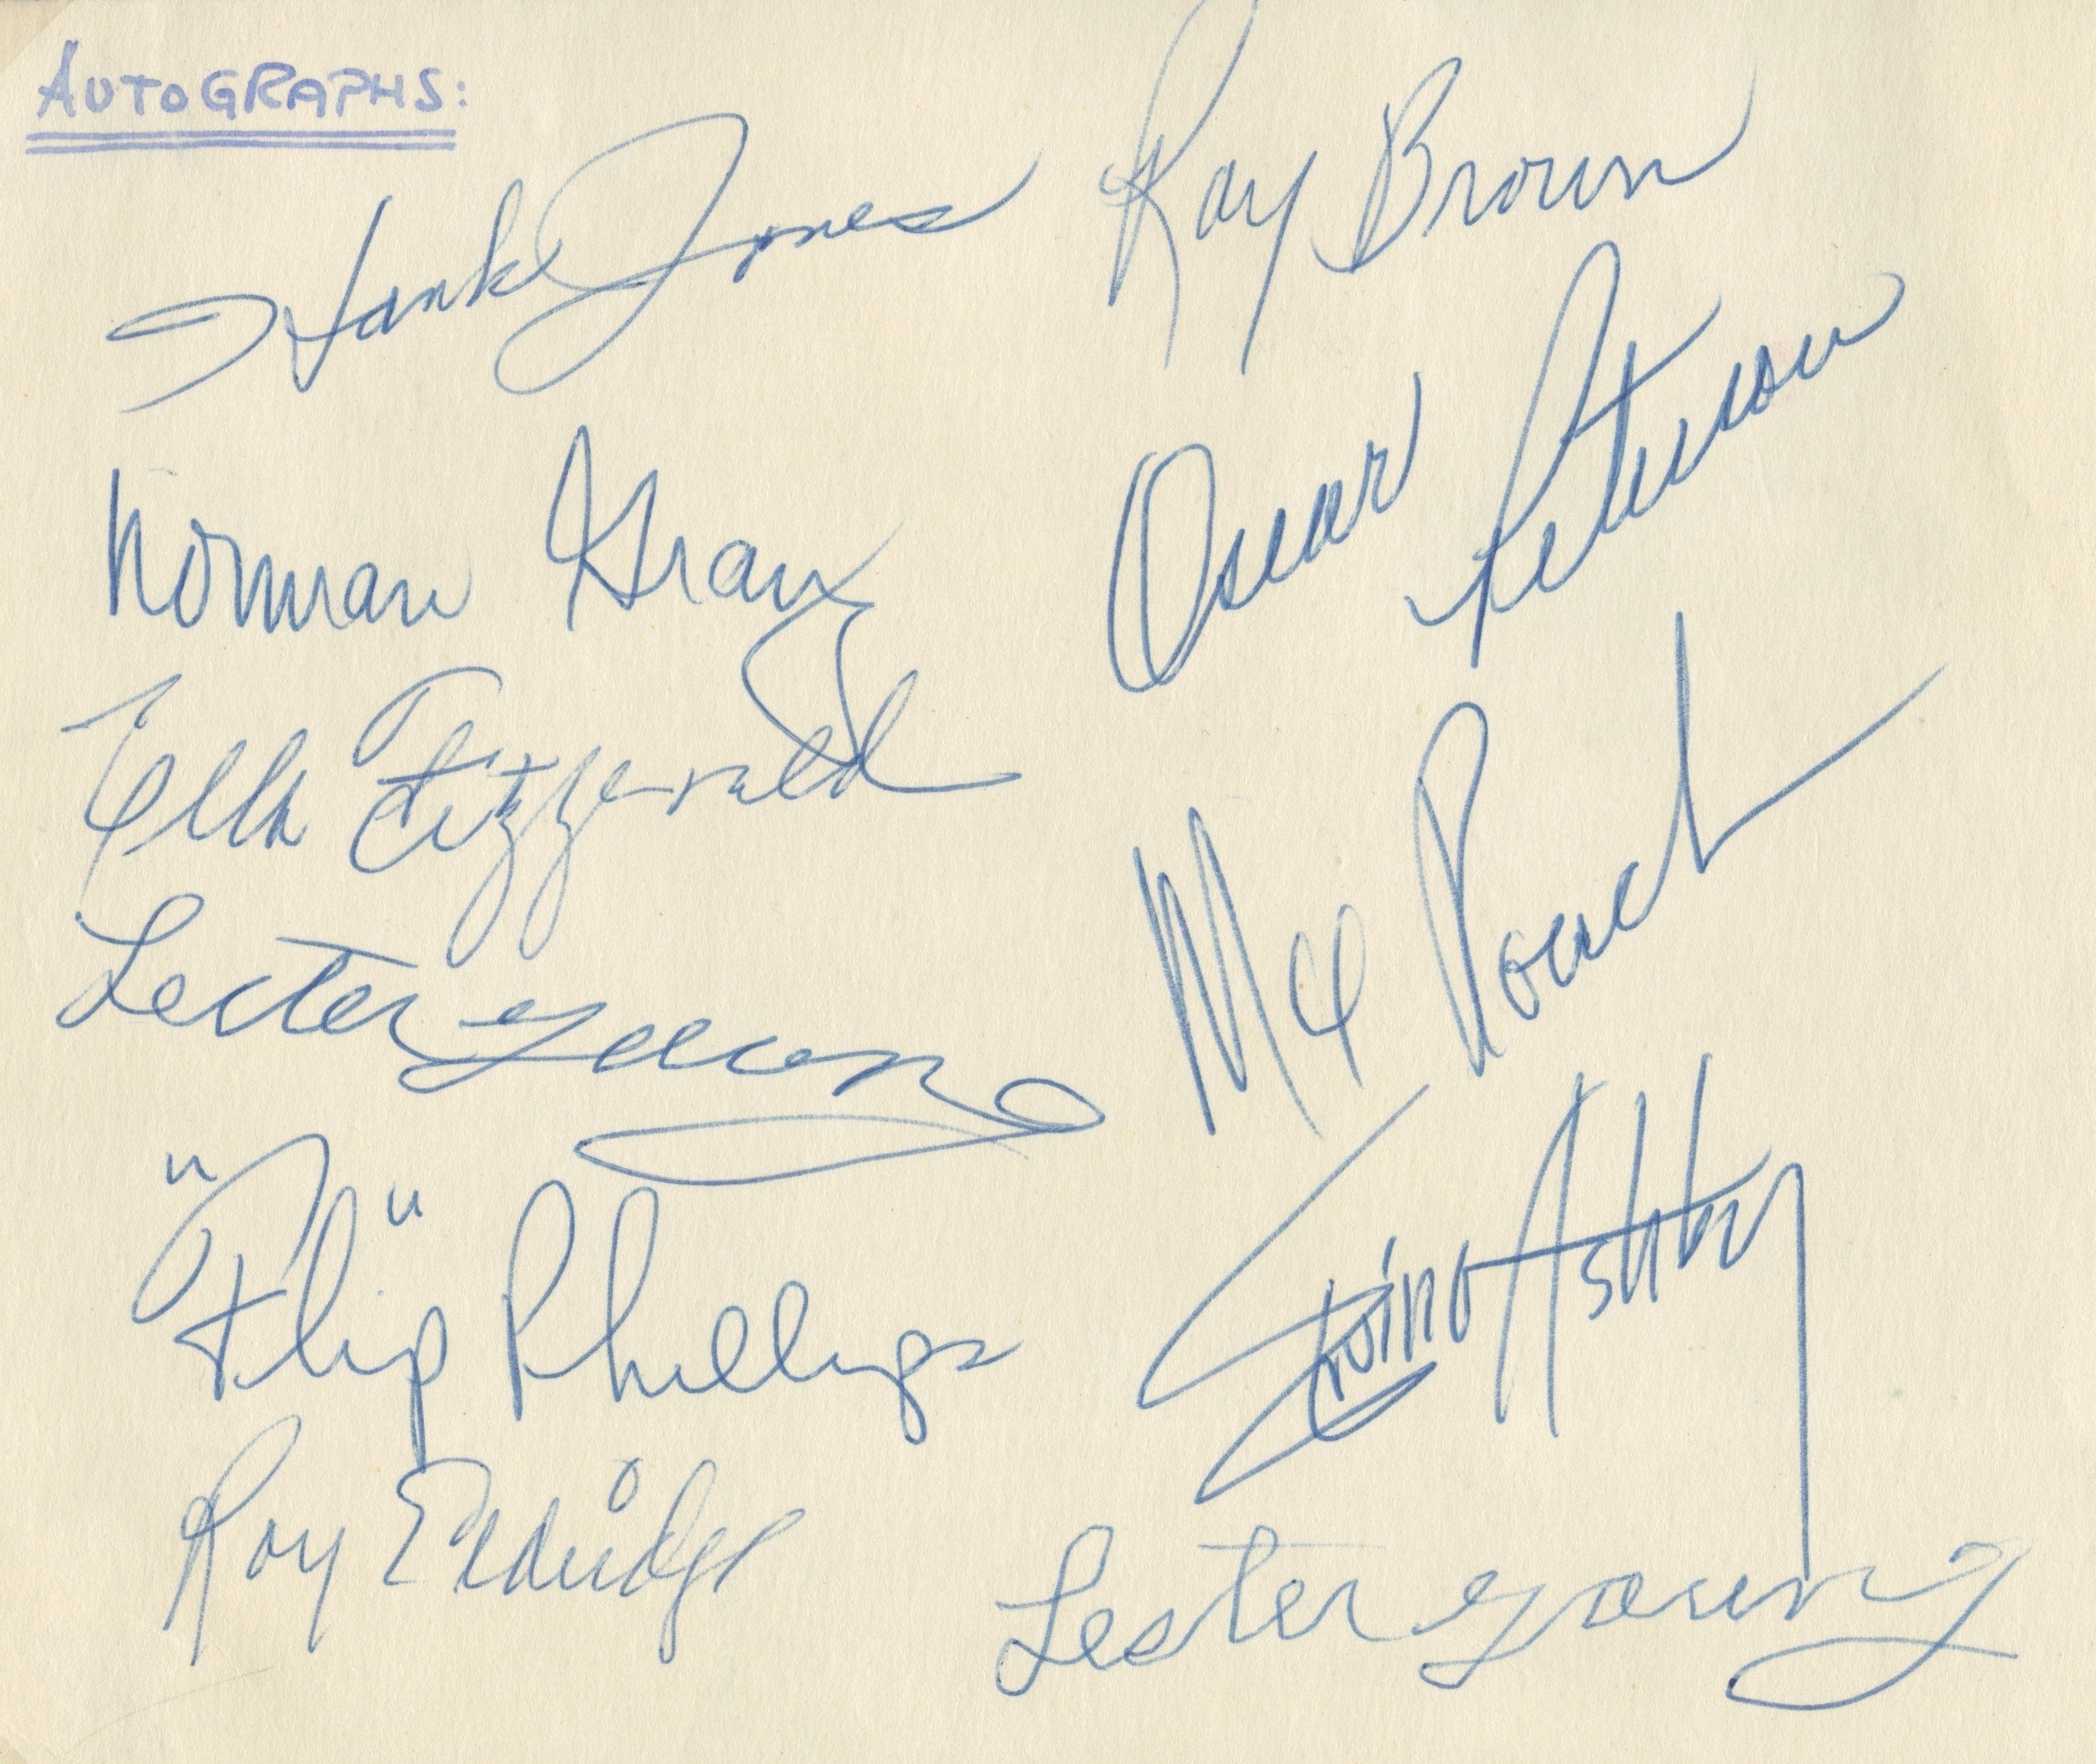 AUTOGRAPHS:
Hank Jones
Ray Brown
Norman Granz
Oscar Peterson
Ella Fitzgerald
Max Roach
Lester Young
"Flip" Phillips
Ashby
Roy Eldridge
Lester Young